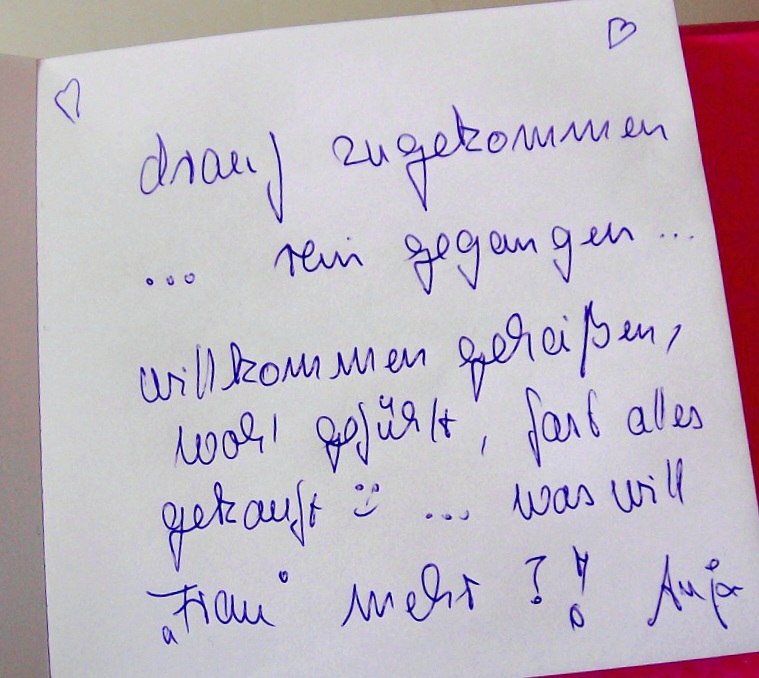 drauf zugekommen
... rein gegangen ...
willkommen geheißen,
wohl gefühlt, fast alles
gekauft ü ... was will
„Frau“ mehr ?! Anja